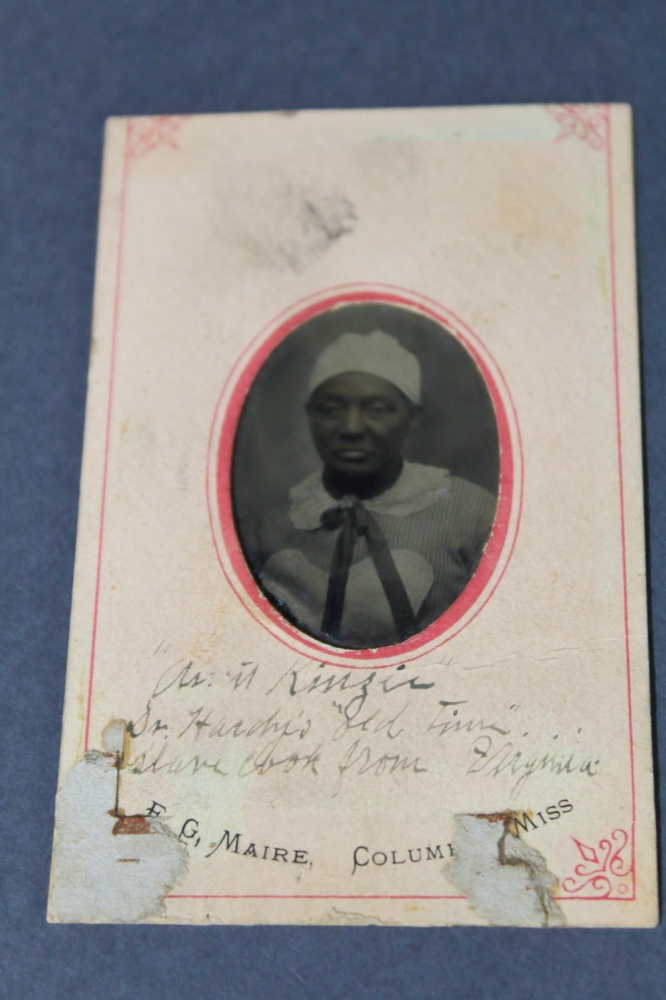 "Aunt Kinzie"
Dr. Hardy's "old time" . . .
slave cook from Virginia
F. G. MAIRE, COLUM MISS